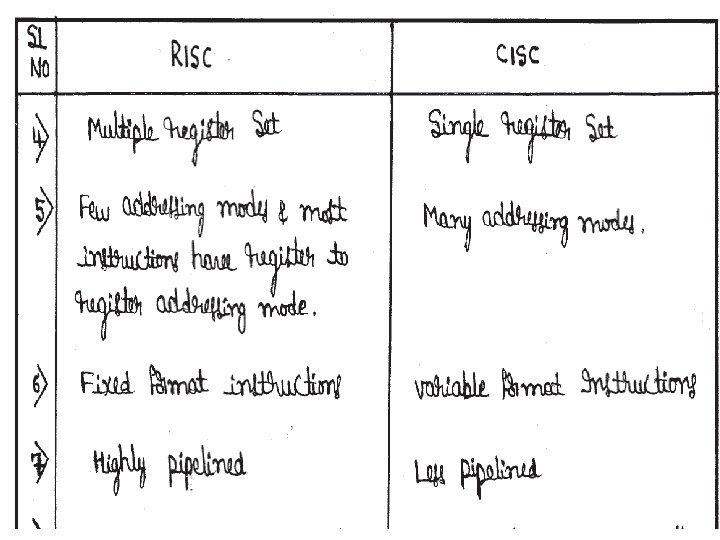 Sl No RISC CISC
4> Multiple register Set Single register Set
5> Few addressing modes & most Many addressing modes.
instructions have register to
register addressing mode.
6> Fixed format instructions variable format Instructions
7> Highly pipelined Less pipelined